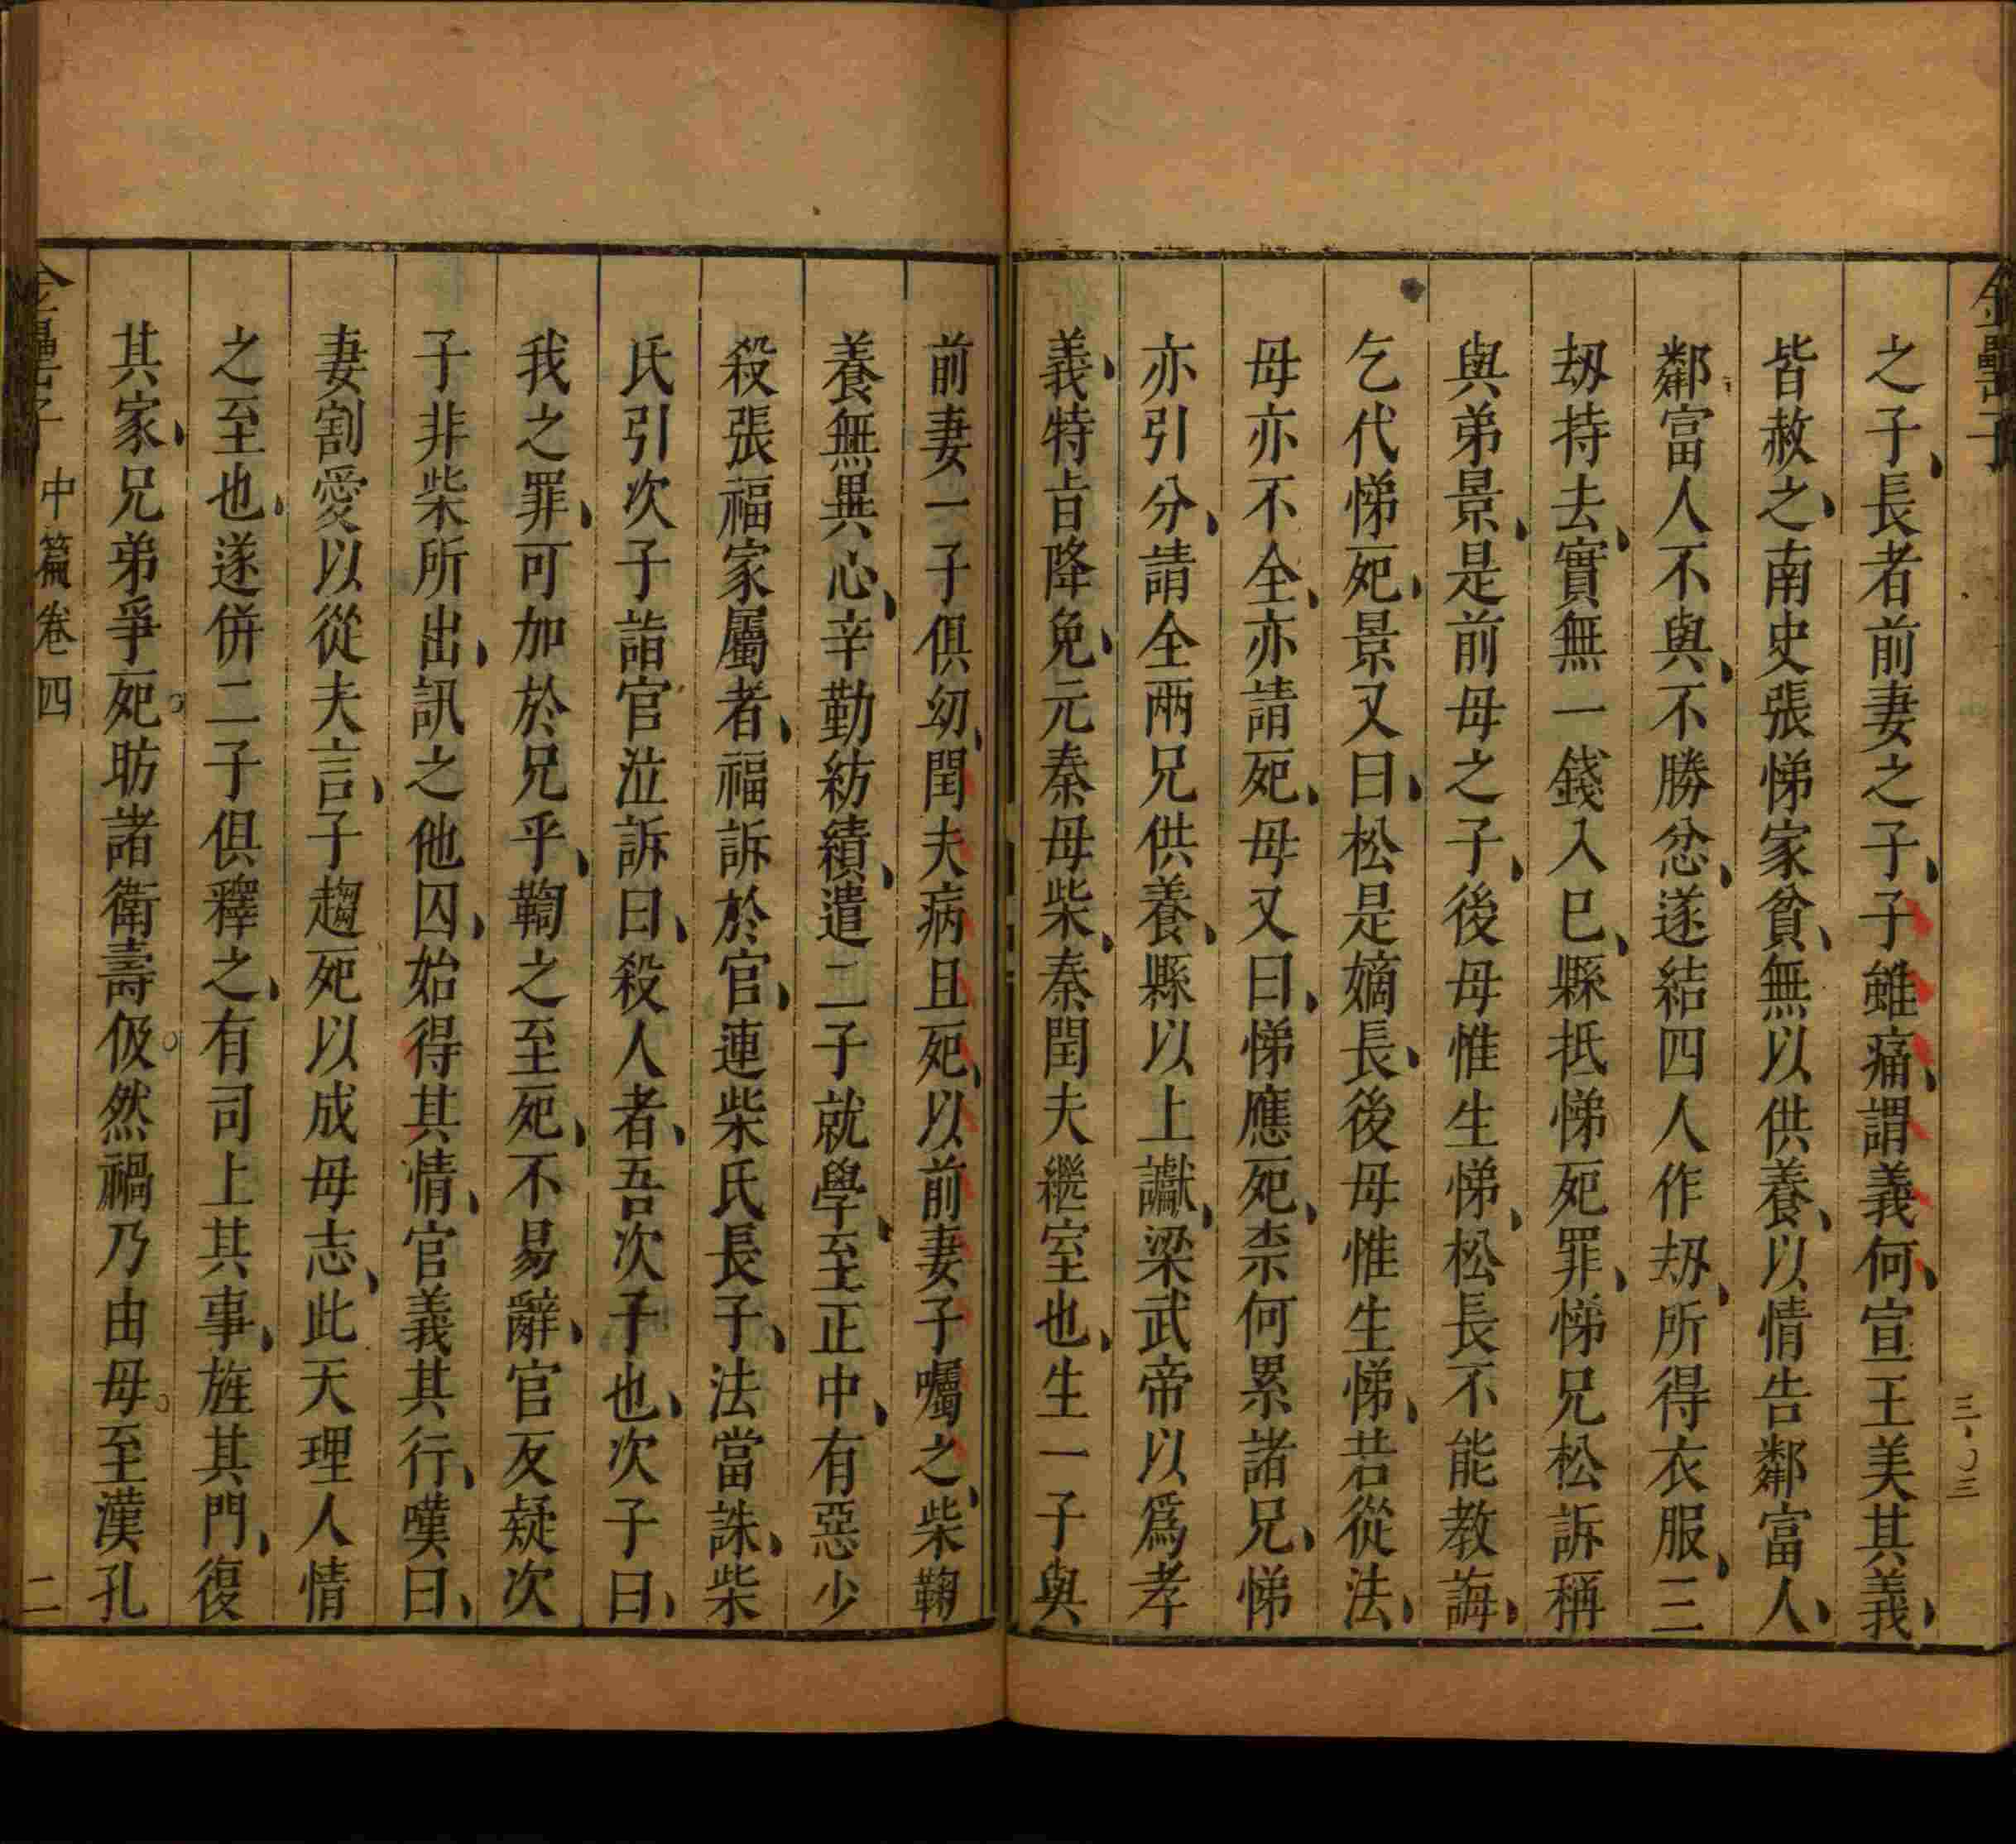 金罍子
之子、長者前妻之子、子雖痛、謂義何、宣王美其義、
皆赦之、南史張悌家貧、無以供養、以情告鄰富人、
鄰富人不與、不勝忿、遂結四人作刼、所得衣服、三
刼持去、實無一錢入巳、縣抵悌死罪、悌兄松訴稱
與弟景、是前母之子、後母惟生悌、松長不能教誨、
乞代悌死、景又曰、松是嫡長、後母惟生悌、若從法、
母亦不全、亦請死、母又曰、悌應死、柰何累諸兄、悌
亦引分、請全兩兄供養、縣以上讞、梁武帝以爲孝
義、特㫖降免、元秦母柴、秦閏夫繼室也、生一子與
前妻一子俱幼、閏夫病且死、以前妻子囑之、柴鞠
養無異心、辛勤紡績、遣二子就學、至正中、有惡少
殺張福家屬者、福訴於官、連柴氏長子、法當誅、柴
氏引次子詣官泣訴曰、殺人者、吾次子也、次子曰、
我之罪、可加於兄乎、鞫之至死、不易辭、官反疑次
子非柴所出、訊之他囚、始得其情、官義其行、嘆曰、
妻割愛以從夫言、子趨死以成母志、此天理人情
之至也、遂併二子俱釋之、有司上其事、旌其門、復
其家、兄弟爭死。昉諸衛壽伋。然禍乃由母。至漢孔
金罍子 中篇卷四 二